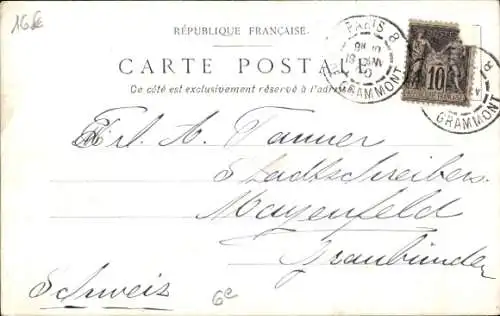 16€
RÉPUBLIQUE FRANÇAISE.
CARTE POSTAL
Ce côté est exclusivement réservé à l'adresse
PARIS 8
GRAMMONT
10
8
GRAMMONT
Frl. A. Tanner
Stadtschreibers.
Mayenfeld
Graubünden
Schweiz
6c